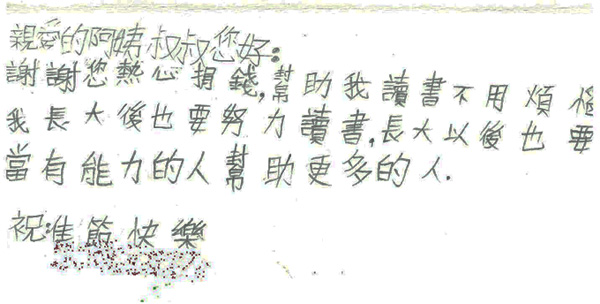 親愛的阿姨叔叔您好:
謝謝您熱心捐錢,幫助我讀書不用煩惱
我長大後也要努力讀書,長大以後也要
當有能力的人幫助更多的人.
祝:佳節快樂